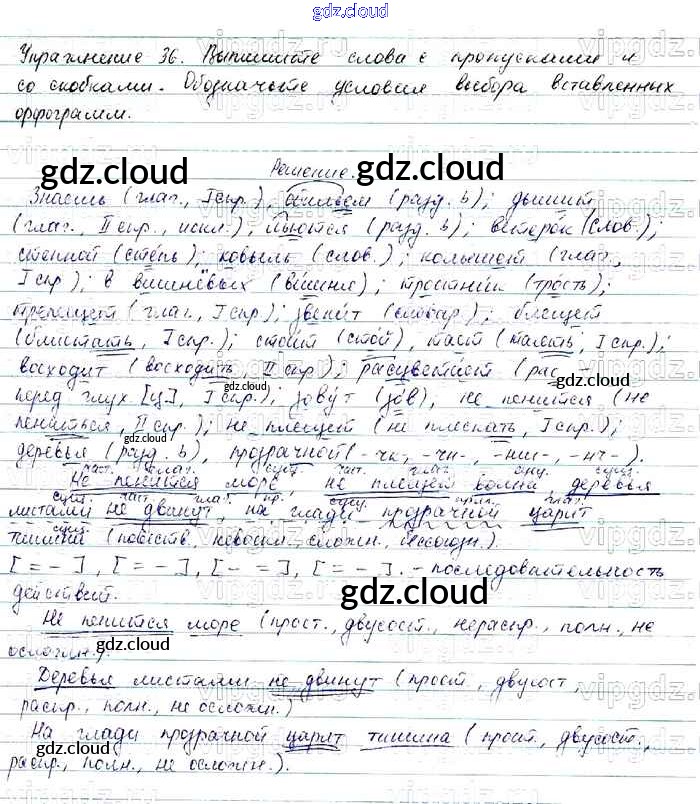 gdz.cloud
Упражнение 36. Выпишите слова с пропусками и
со скобками. Обозначьте условия выбора вставленных
орфограмм.
gdz.cloud gdz.cloud
Решение.
Знаешь (глаг., I спр.), (разд. ь); дышит
(глаг., II спр., искл.), льются (разд. ь); ветерок (слов.);
степной (степь); ковыль (слов.); колышет (глаг.,
I спр.); в вишнёвых (вишня); тростник (трость);
трепещет (глаг., I спр.); звенит (словар.); блещет
(блистать, I спр.); стоит (стой), тает (таять, I спр.);
восходит (восходить, II спр.); расцветает (рас –
gdz.cloud gdz.cloud
перед глух [ц], I спр.); зовут (зов), не пенится (не
пениться, II спр.); не плещет (не плескать, I спр.);
gdz.cloud
деревья (разд. ь), прозрачной (-чк-, -чн-, -нч-).
част. глаг. сущ. част. глаг. сущ. сущ.
Не пенится море не плещет волна деревья
сущ. част. глаг. пр. сущ. прил. глаг.
листами не двинут, на глади прозрачной царит
сущ.
тишина (повеств., невоскл., сложн., бессоюзн.).
[= –], [= –], [– =], [= –]. – последовательность
действий.
gdz.cloud
Не пенится море (прост., двусост., нераспр., полн., не
осложн.).
gdz.cloud
Деревья листами не двинут (прост., двусост.,
распр., полн., не осложн.)
На глади прозрачной царит тишина (прост., двусост.,
gdz.cloud
распр., полн., не осложн.).
gdz.cloud